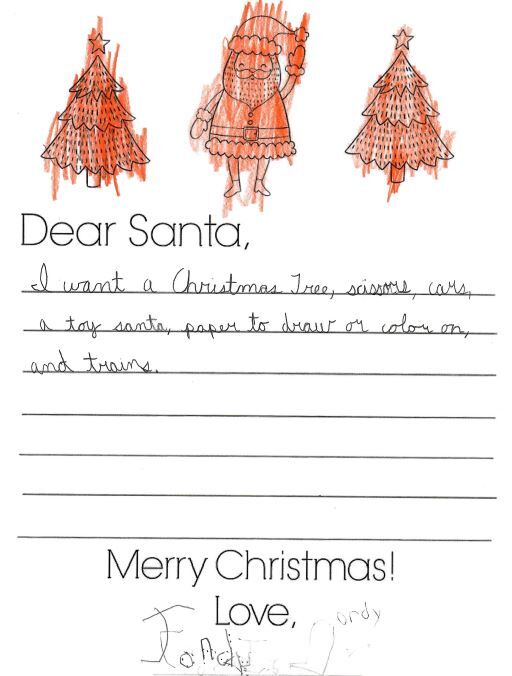 Dear Santa,
I want a Christmas Tree, scissors, cars,
a toy santa, paper to draw or color on,
and trains.
Merry Christmas!
Love,